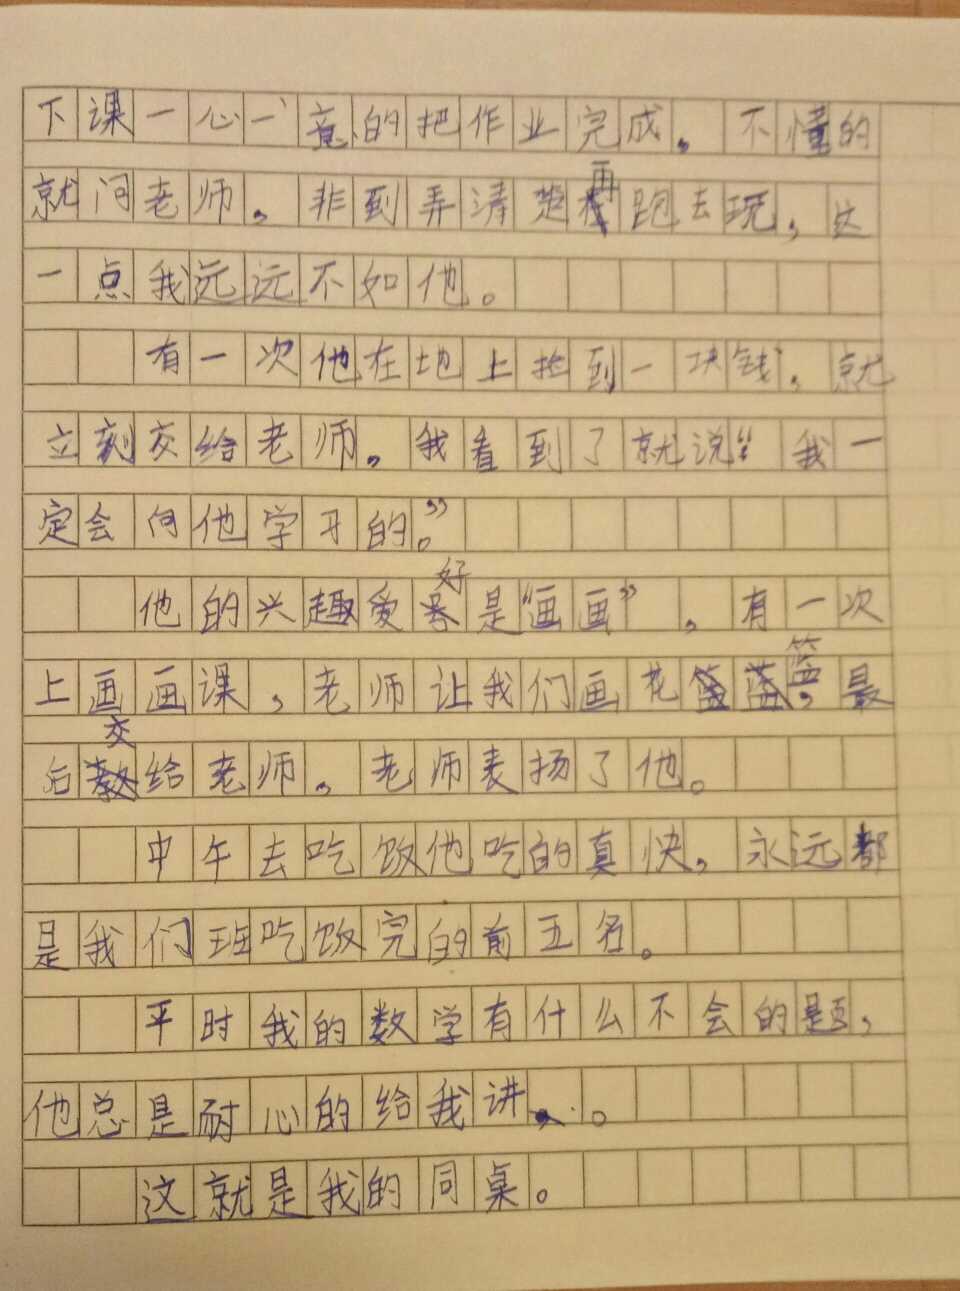 下课一心一意的把作业完成。不懂的
就问老师。非到弄清楚再跑去玩，这
一点我远远不如他。
有一次他在地上捡到一块钱，就
立刻交给老师。我看到了就说“我一
定会向他学习的。”
他的兴趣爱好是“画画”，有一次
上画画课，老师让我们画花篮，最
后交给老师。老师表扬了他。
中午去吃饭他吃的真快，永远都
是我们班吃饭完的前五名。
平时我的数学有什么不会的题，
他总是耐心的给我讲。
这就是我的同桌。